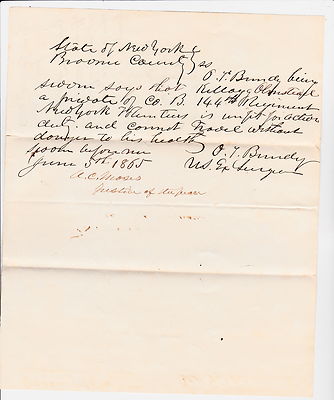 State of New York &
Broome County } ss
O. T. Bundy being
sworn says that Kellogg Olmstead
a private of Co. B. 144th Regiment
New York Volunteers is unfit for action
duty. and cannot Travel without
danger to his health
sworn before me O. T. Bundy
June 5th 1865 U.S. Ex Surgeon
A. C. Moses
Justice of the peace